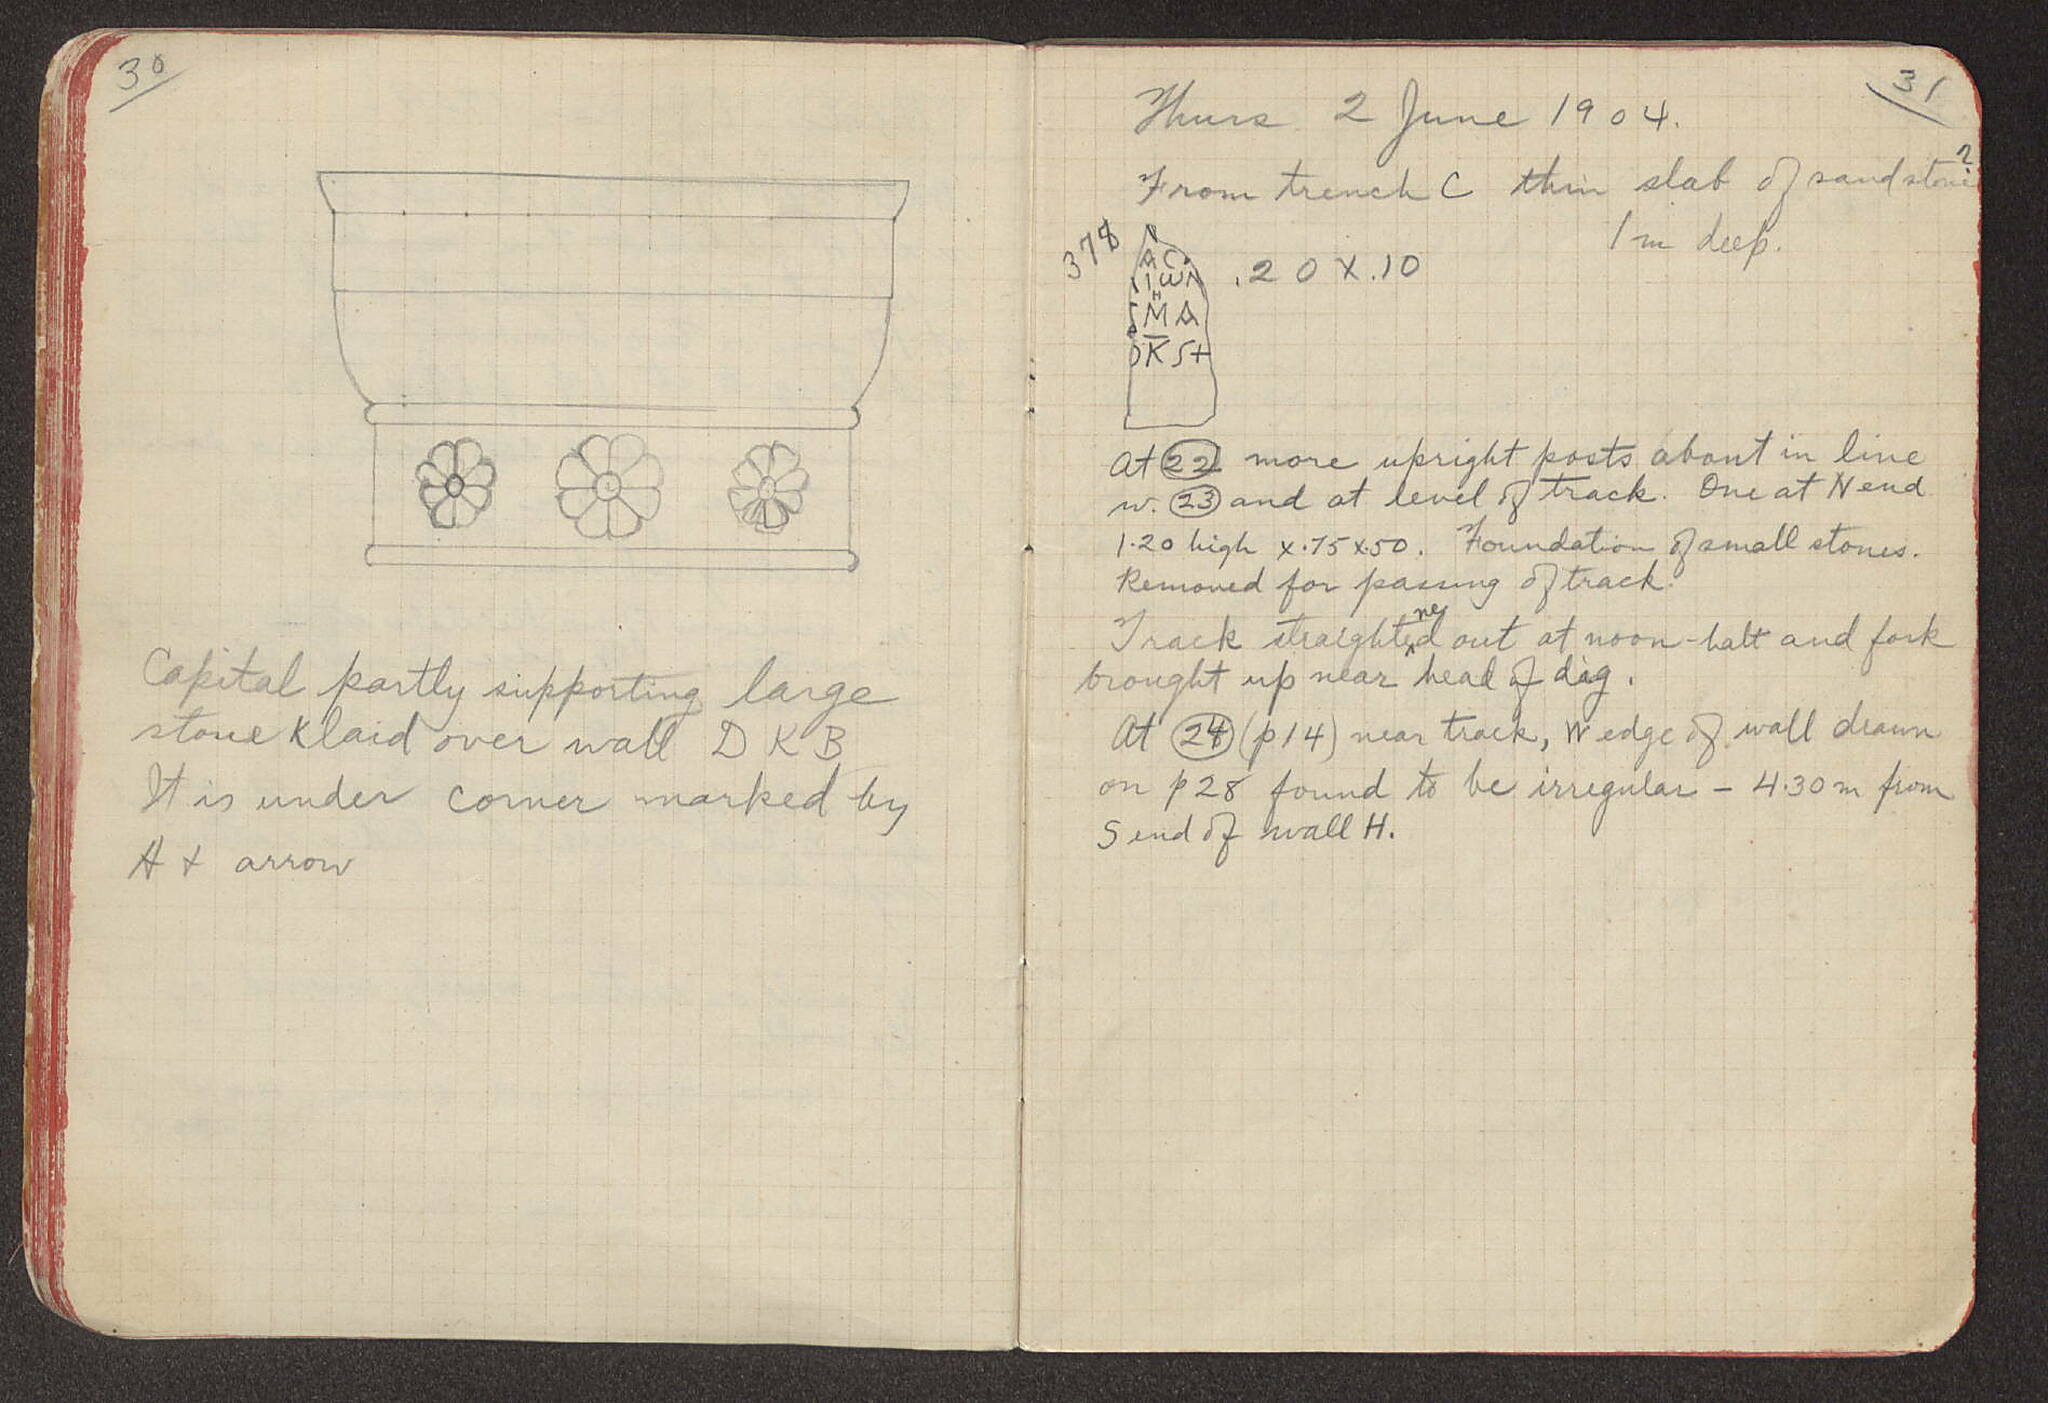 30
Capital partly supporting large
stone K laid over wall D K B
It is under corner marked by
A + arrow
31
Thurs 2 June 1904.
From trench C thin slab of sandstone?
1 m deep.
378
.20 X .10
At 22 more upright posts about in line
w. 23 and at level of track. One at N end
1.20 high x .75 x .50. Foundation of small stones.
Removed for passing of track.
Track straightened out at noon-halt and fork
brought up near head of dig.
At 24 (p14) near track, W edge of wall drawn
on p28 found to be irregular - 4.30 m from
S end of wall H.